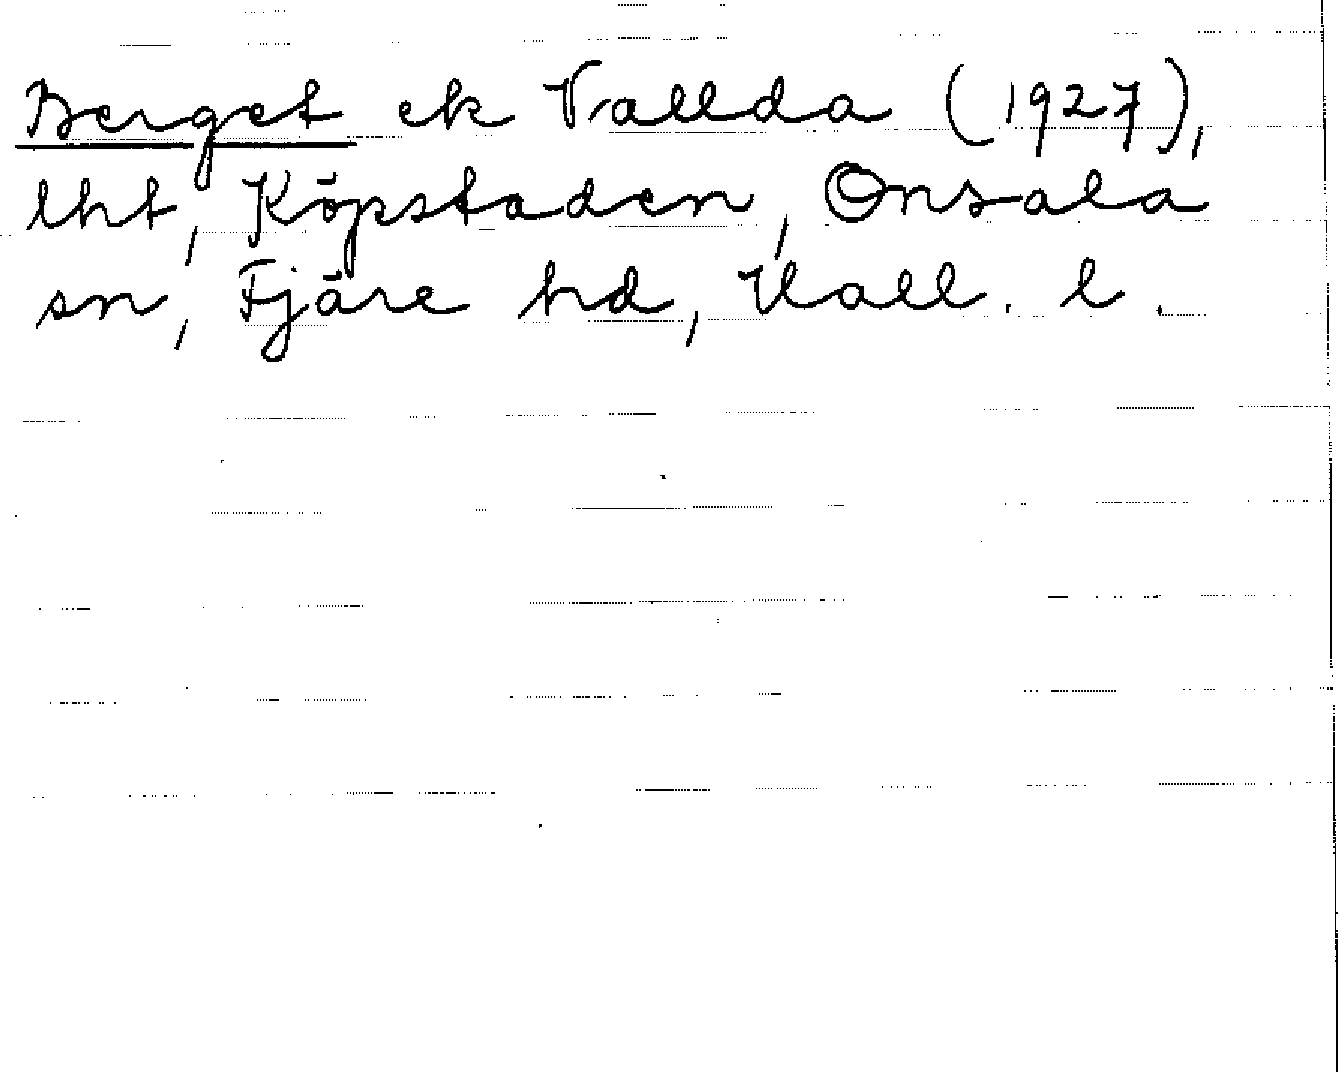 Berget ek Vallda (1927),
lht, Köpstaden, Onsala
sn, Fjäre hd, Hall. l.